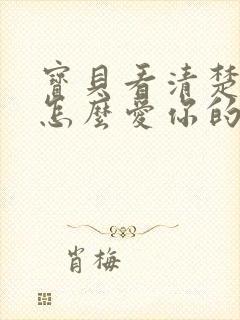 寶貝看清楚
怎麼愛你的
肖梅